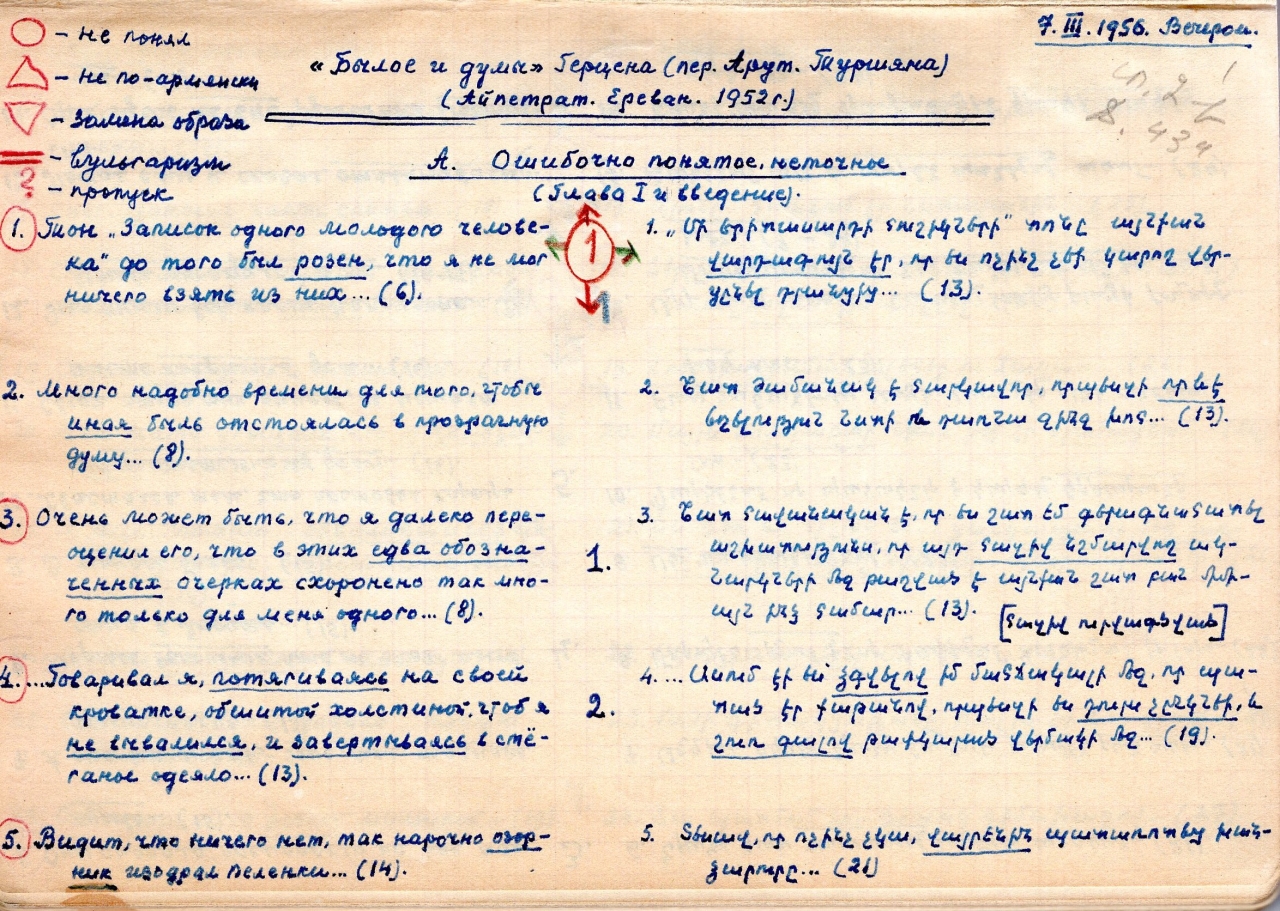 7. III. 1956. Вечером.
– не понял
– не по-армянски
– замена образа
– вульгаризм
? – пропуск
«Былое и думы» Герцена (пер. Арут. Туршяна)
(Айпетрат. Ереван. 1952г.)
А. Ошибочно понятое, неточное
(Глава I и введение).
1. Тон „Записок одного молодого челове-
ка“ до того был розен, что я не мог
ничего взять из них... (6).
1
1
1. „Մի երիտասարդի հուշիկների“ տոնը այնքան
վարդագույն էր, որ ես ոչինչ չեմ կարող վեր-
ցնել դրանցից... (13).
2. Много надобно времени для того, чтобы
иная быль отстоялась в прозрачную
думу... (8).
2. Շատ ժամանակ է հարկավոր, որպեսզի որևէ
եղելություն նստի ու դառնա զինջ խոհ... (13).
3. Очень может быть, что я далеко пере-
оценил его, что в этих едва обозна-
ченных очерках схоронено так мно-
го только для меня одного... (8).
1.
3. Շատ հավանական է, որ ես շատ եմ գերագնահատել
աշխատությունս, որ այդ հազիվ նշմարվող ակ-
նարկների մեջ թաղված է այնքան շատ բան միմի-
այն ինձ համար... (13).
[հազիվ ուրվագծված]
4. ...Говаривал я, потягиваясь на своей
кроватке, обшитой холстиной, чтоб я
не вывалился, и завертываясь в стё-
ганое одеяло... (13).
2.
4. ... Ասում էի ես ձգվելով իմ մահճակալի մեջ, որ պա-
տած էր քաթանով, որպեսզի ես դուրս չընկնեի, և
շուռ գալով բամբակած վերմակի մեջ... (19).
5. Видит, что ничего нет, так нарочно озор-
ник изодрал пеленки... (14).
5. Տեսավ, որ ոչինչ չկա, վայրենին պատառոտեց խան-
ձարուրը... (21)